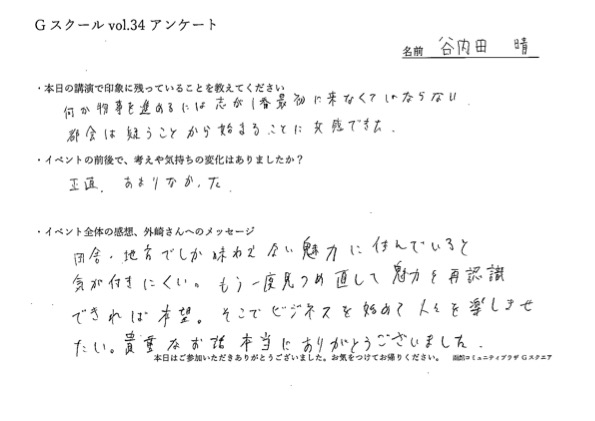 G スクール vol.34 アンケート
名前 谷内田 晴
・本日の講演で印象に残っていることを教えてください
何か物事を進めるには志が1番最初に来なくてはならない.
都会は疑うことから始まることに共感できた.
・イベントの前後で、考えや気持ちの変化はありましたか？
正直、あまりなかった.
・イベント全体の感想、外崎さんへのメッセージ
田舎・地方でしか味わえない魅力に住んでいると
気が付きにくい。もう一度見つめ直して魅力を再認識
できれば本望。そこでビジネスを始めて人々を楽しませ
たい。貴重なお話本当にありがとうございました.
本日はご参加いただきありがとうございました。お気をつけてお帰りください。 函館コミュニティプラザ G スクエア